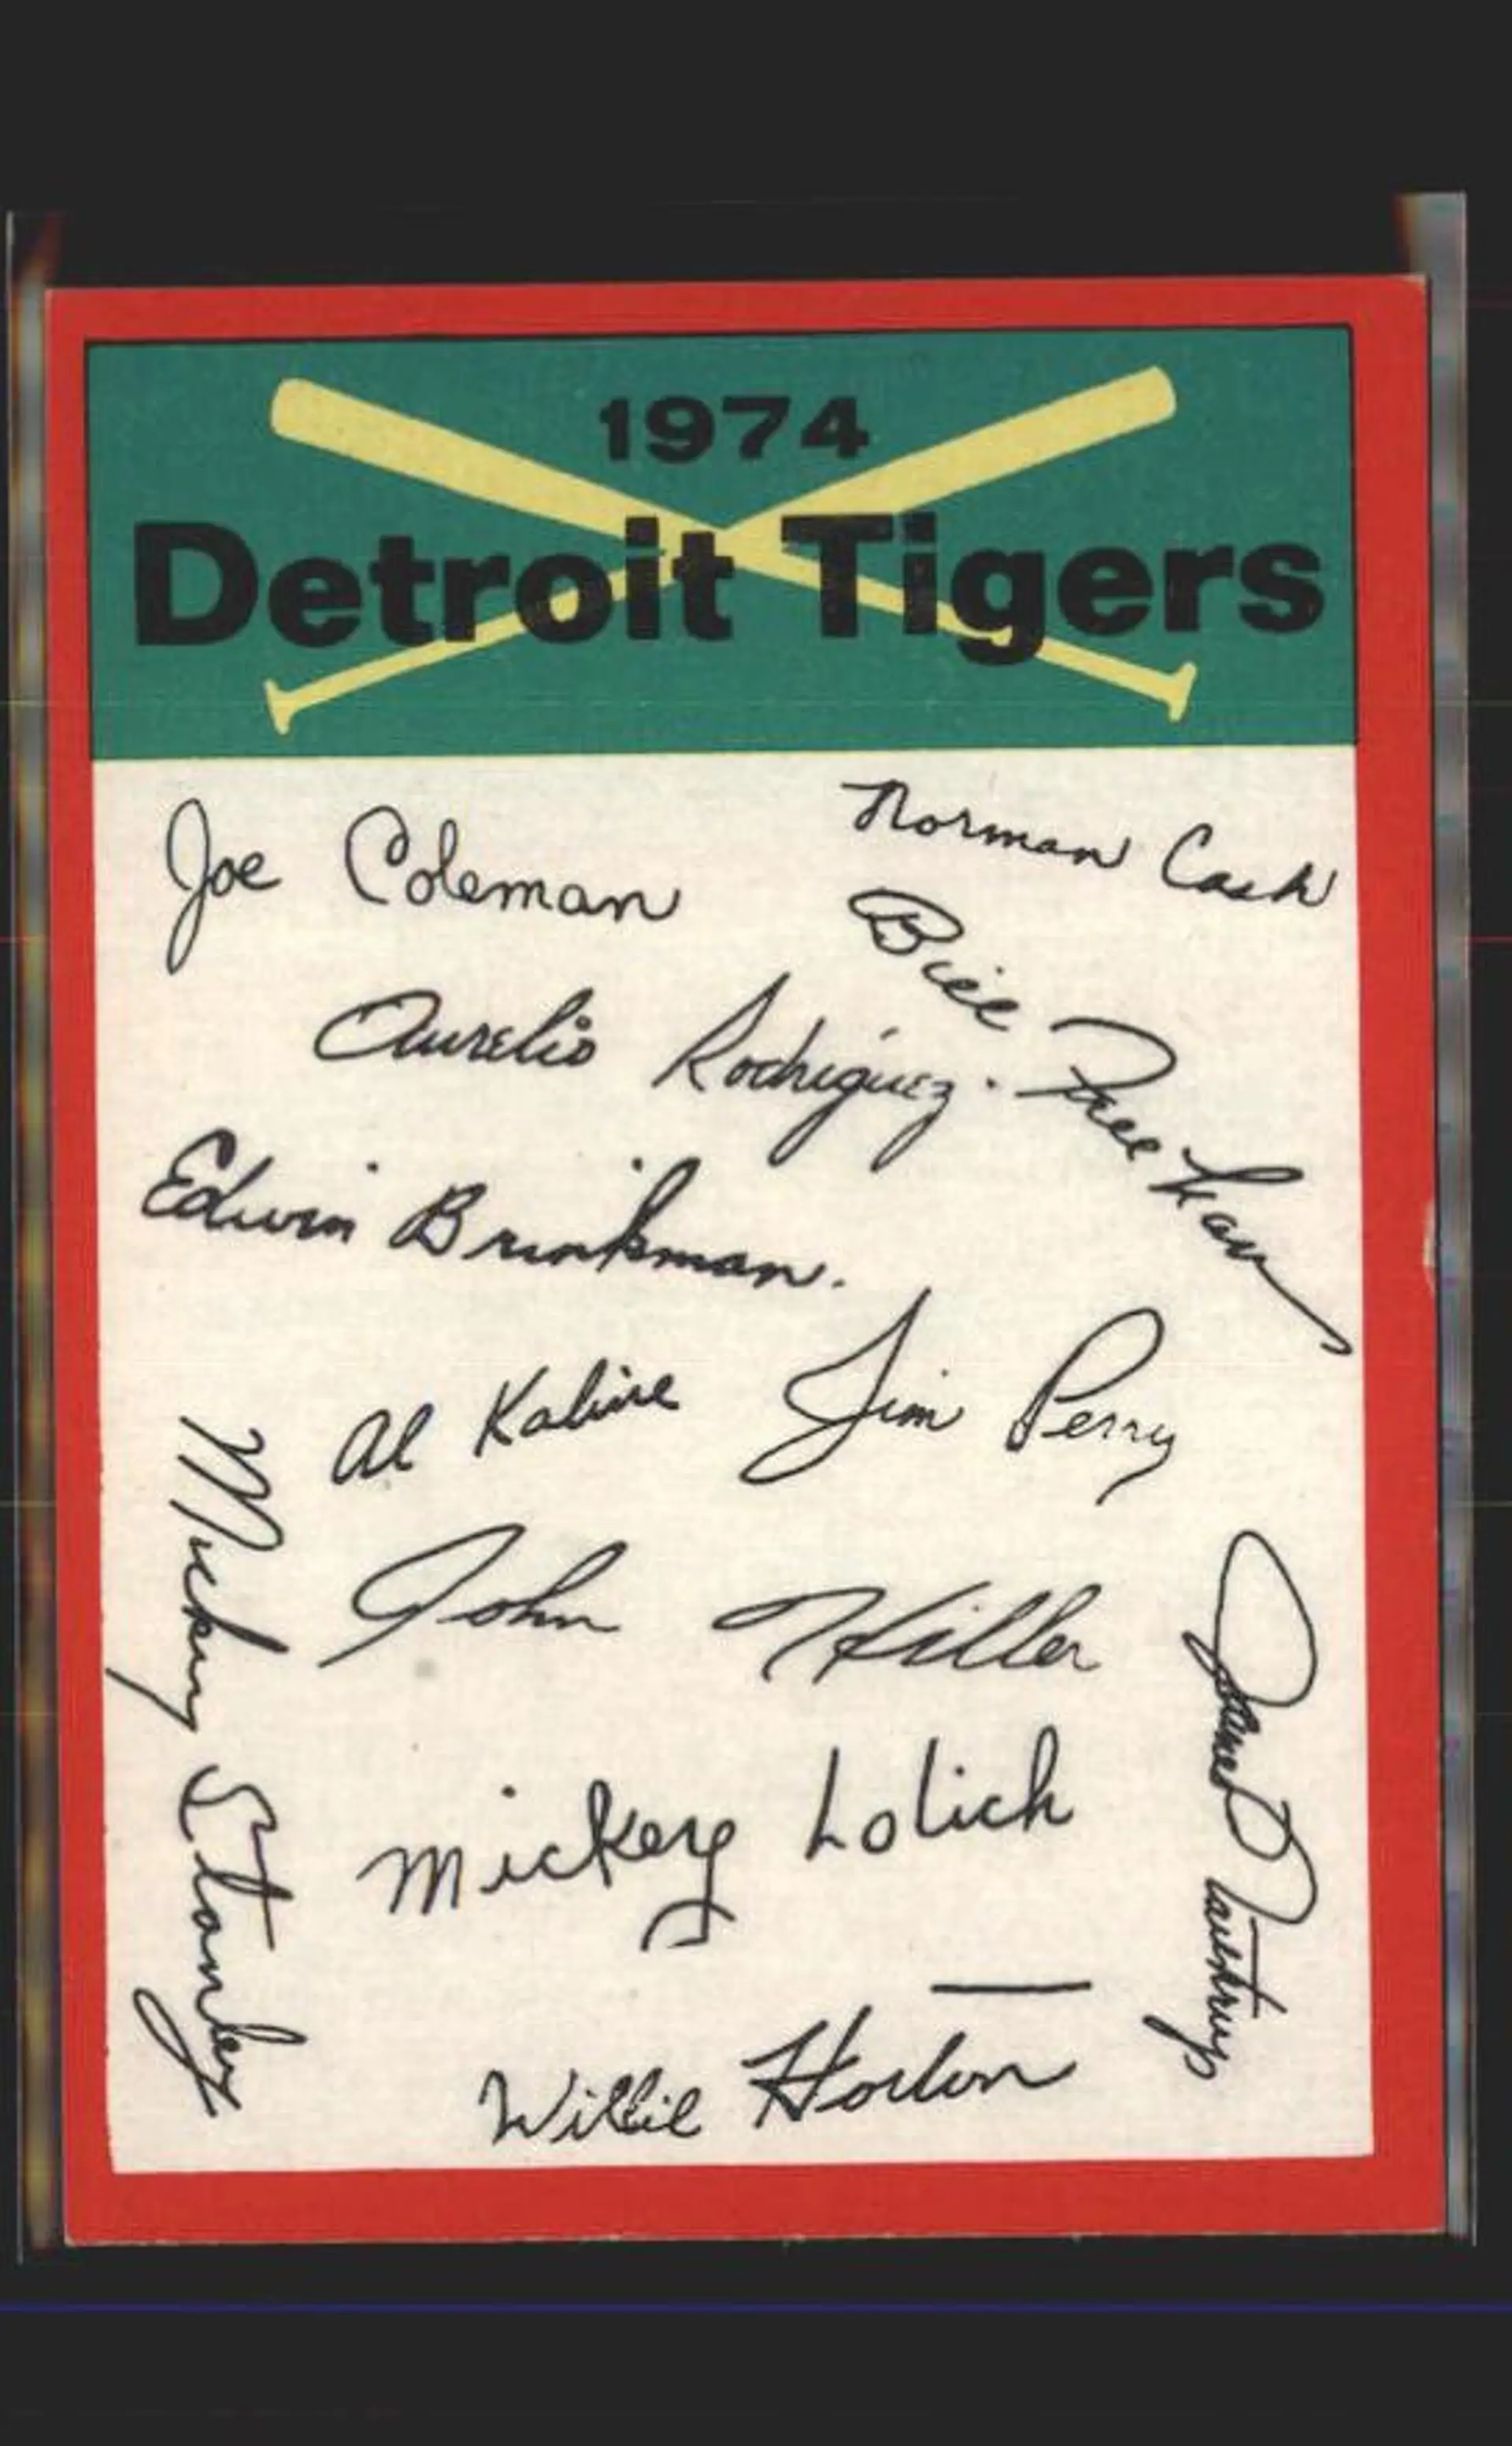 1974
Detroit Tigers
Joe Coleman
Norman Cash
Bill Freehan
Aurelio Rodriguez.
Edwin Brinkman.
Al Kaline
Jim Perry
Mickey Stanley
John Hiller
James Northrup
Mickey Lolich
Willie Horton